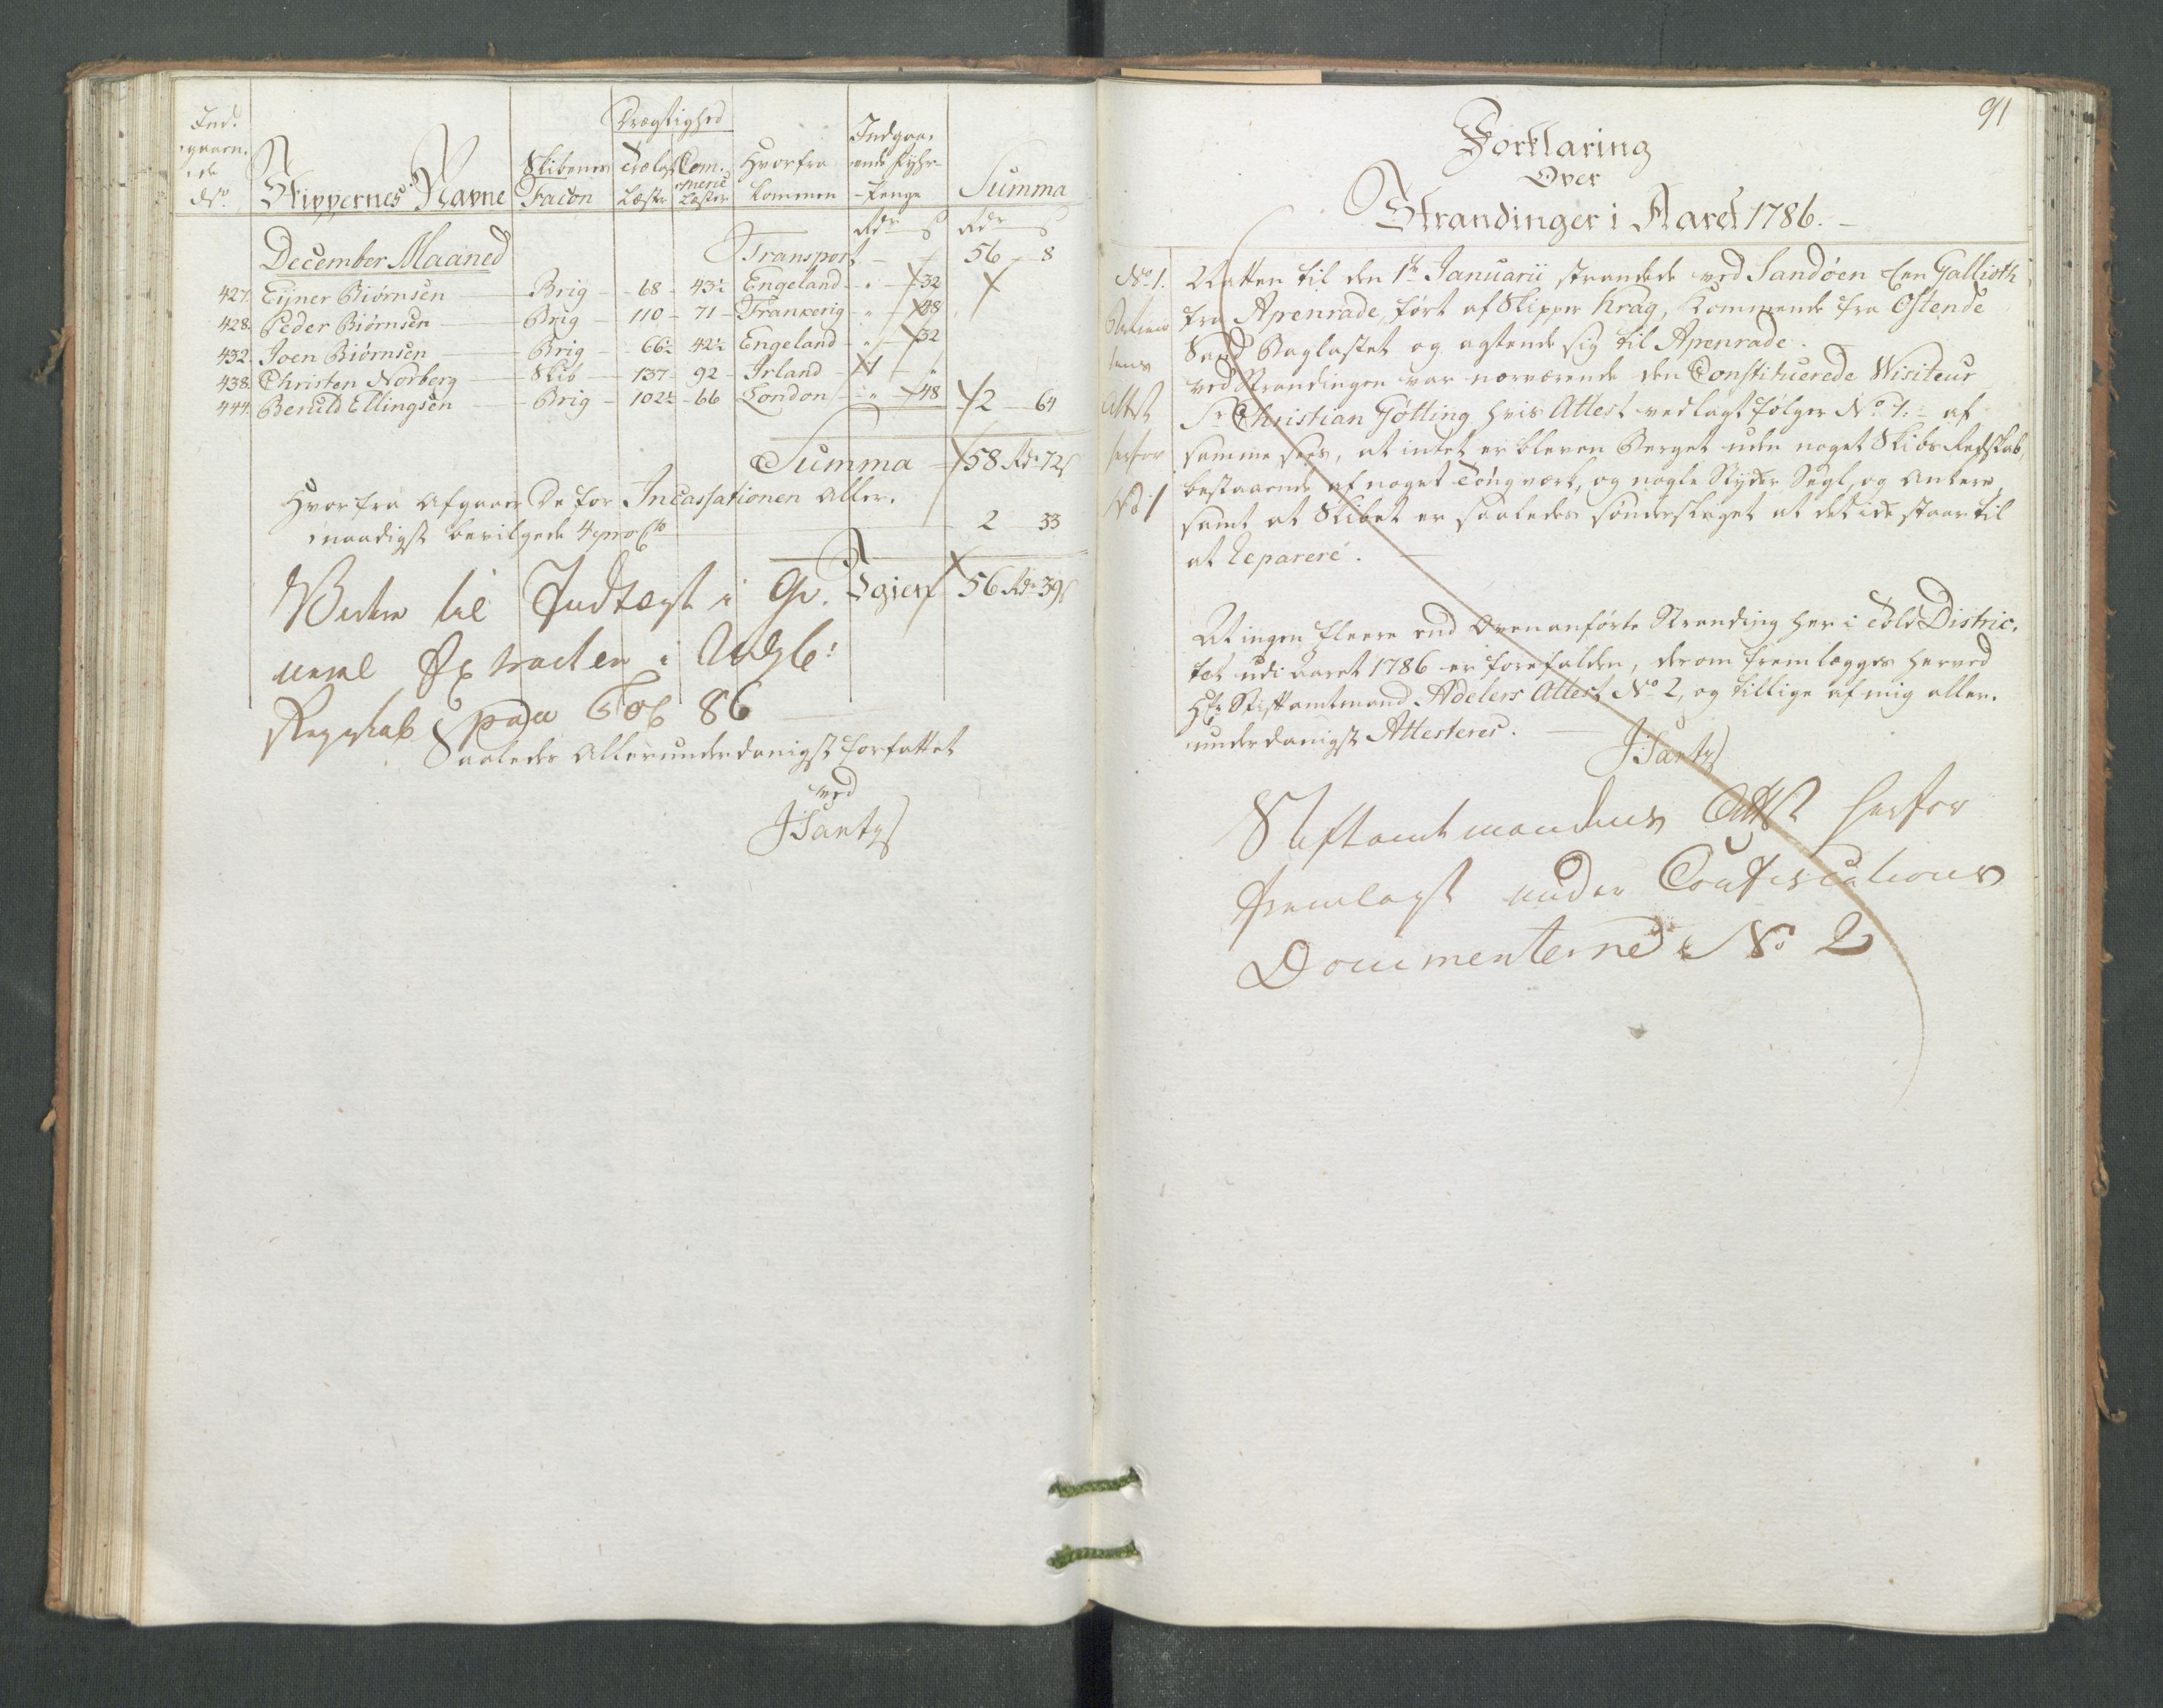 Ind.
gaaen.
de
No
Skippernes Navne
Skibenes
Facon
Drægtighed
Trælast
Læster
Com.
merce
Læster
Hvorfra
kommen
Indgaa-
ende Fyhr-
Penge
Summa
Rdr ß Rdr ß
December Maaned Transport - - 56 - 8
427. Ejner Biørnsen - Brig - 68 - 43½ Engeland - " - 32
428. Peder Biørnsen - Brig - 110 - 71 - Frankerig - " - 48
432. Joen Biørnsen - Brig - 66½ 42½ Engeland - " - 32
438. Christen Norberg - Skib - 137 - 92 - Irland - 1 - "
444. Benild Ellingsen - Brig - 102½ - 66 London - " - 48 2 - 64
Summa - 58 Rdr 72ß
Hvorfra afgaaer De for Incassationen aller.
naadigst bevilgede 4 proCto 2 33
Igien 56 Rdr 39ß
til Indtægt i
Extracten i
Regskab pag 86
Saaledes Allerunderdanigst forfattet
ved
JSartz
91
Forklaring
Over
Strandinger i Aaret 1786.
No 1. Natten til den 1te Januarii strandede ved Sandøen Een Gallioth
fra Apenrade, ført af Skipper Krag, kommende fra Ostende
Sand Baglastet og agtende sig til Apenrade.
ved Strandingen var nærværende den Constituerede Visiteur
Sr Christian Gøtting hvis Attest vedlagt følger No 1. af
samme sees, at intet er bleven Berget uden noget Skibs Redskab,
bestaaende af noget Tougværk, og nogle Stykker Segl, og Ankere,
samt at Skibet er saaledes sønderslaget at det icke staar til
at Reparere.
Attest
herfor
No 1
At ingen fleere end Ovenanførte Stranding her i Told Distric-
tet udi Aaret 1786 er forefalden, derom fremlægges herved
Hr Stiftamtmand Adelers Attest No 2, og tillige af mig aller-
underdanigst Attesteres.
JSartz
Stiftamtmandens Attest herfor
fremlagt under Confiscations
Documenterne No 2